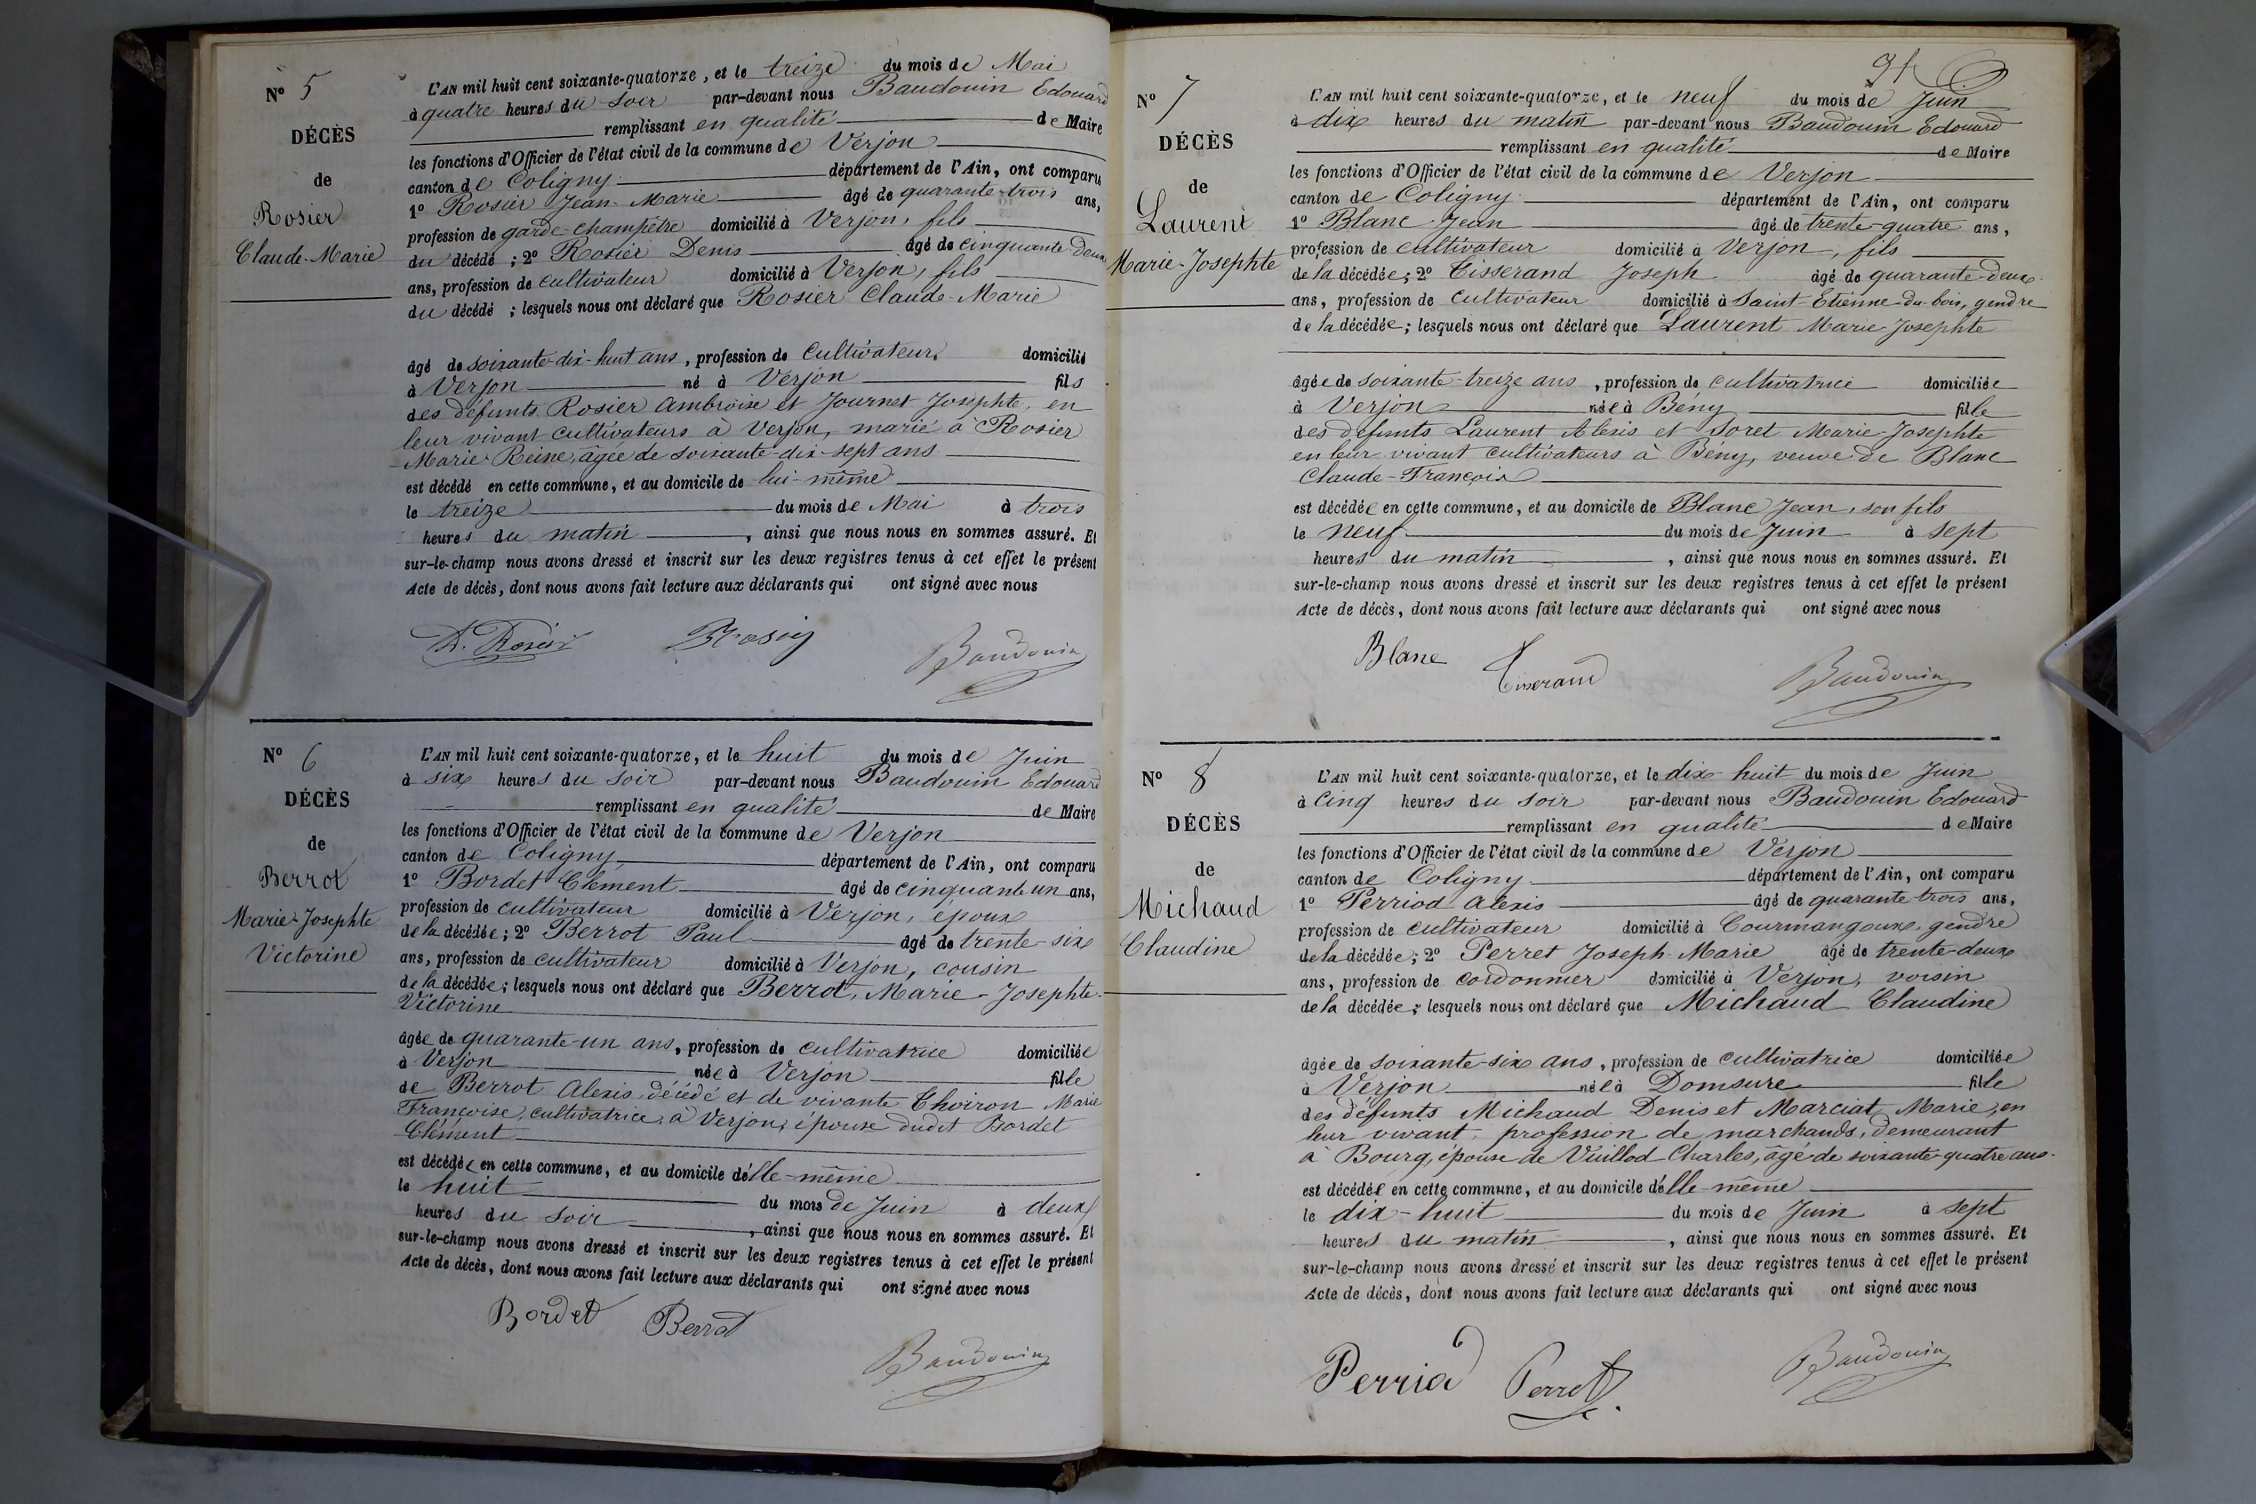 N° 5
DÉCÈS
de
Rosier
Claude-Marie
L'AN mil huit cent soixante-quatorze, et le treize du mois de Mai
à quatre heures du soir par-devant nous Baudouin Edouard
remplissant en qualité de Maire
les fonctions d'Officier de l'état civil de la commune de Verjon
canton de Coligny département de l'Ain, ont comparu
1° Rosier Jean-Marie âgé de quarante-trois ans,
profession de garde-champêtre domicilié à Verjon, fils
du décédé ; 2° Rosier Denis âgé de cinquante-deux
ans, profession de cultivateur domicilié à Verjon, fils
du décédé ; lesquels nous ont déclaré que Rosier Claude-Marie
âgé de soixante-dix-huit ans, profession de Cultivateur, domicilié
à Verjon né à Verjon fils
des défunts Rosier Ambroise et Journet Josephte, en
leur vivant cultivateurs à Verjon, marié à Rosier
Marie-Reine, agée de soixante-dix-sept ans
est décédé en cette commune, et au domicile de lui-même
le treize du mois de Mai à trois
heures du matin, ainsi que nous nous en sommes assuré. Et
sur-le-champ nous avons dressé et inscrit sur les deux registres tenus à cet effet le présent
Acte de décès, dont nous avons fait lecture aux déclarants qui ont signé avec nous
D. Rosier Rosier Baudouin
N° 6
DÉCÈS
de
Berrot
Marie-Josephte
Victorine
L'AN mil huit cent soixante-quatorze, et le huit du mois de Juin
à six heures du soir par-devant nous Baudouin Edouard
remplissant en qualité de Maire
les fonctions d'Officier de l'état civil de la commune de Verjon
canton de Coligny département de l'Ain, ont comparu
1° Bordet Clément âgé de cinquante un ans,
profession de cultivateur domicilié à Verjon, époux
de la décédée ; 2° Berrot Paul âgé de trente-six
ans, profession de cultivateur domicilié à Verjon, cousin
de la décédée ; lesquels nous ont déclaré que Berrot, Marie-Josephte-
Victorine
âgée de quarante-un ans, profession de cultivatrice domiciliée
à Verjon née à Verjon fille
de Berrot Alexis décédé et de vivante Choiron Marie
Françoise, cultivatrice à Verjon, épouse dudit Bordet
Clément
est décédée en cette commune, et au domicile d'elle-même
le huit du mois de Juin à deux
heures du soir, ainsi que nous nous en sommes assuré. Et
sur-le-champ nous avons dressé et inscrit sur les deux registres tenus à cet effet le présent
Acte de décès, dont nous avons fait lecture aux déclarants qui ont signé avec nous
Bordet Berrot
Baudouin
91
N° 7
DÉCÈS
de
Laurent
Marie-Josephte
L'AN mil huit cent soixante-quatorze, et le neuf du mois de Juin
à dix heures du matin par-devant nous Baudouin Edouard
remplissant en qualité de Maire
les fonctions d'Officier de l'état civil de la commune de Verjon
canton de Coligny département de l'Ain, ont comparu
1° Blanc Jean âgé de trente-quatre ans,
profession de cultivateur domicilié à Verjon, fils
de la décédée ; 2° Tisserand Joseph âgé de quarante-deux
ans, profession de cultivateur domicilié à Saint-Etienne-du-bois, gendre
de la décédée ; lesquels nous ont déclaré que Laurent Marie-Josephte
âgée de soixante-treize ans, profession de cultivatrice domiciliée
à Verjon née à Bény fille
des défunts Laurent Alexis et Soret Marie-Josephte
en leur vivant cultivateurs à Bény, veuve de Blanc
Claude-François
est décédée en cette commune, et au domicile de Blanc Jean, son fils
le neuf du mois de Juin à sept
heures du matin, ainsi que nous nous en sommes assuré. Et
sur-le-champ nous avons dressé et inscrit sur les deux registres tenus à cet effet le présent
Acte de décès, dont nous avons fait lecture aux déclarants qui ont signé avec nous
Blanc Tisserand Baudouin
N° 8
DÉCÈS
de
Michaud
Claudine
L'AN mil huit cent soixante-quatorze, et le dix-huit du mois de Juin
à cinq heures du soir par-devant nous Baudouin Edouard
remplissant en qualité de Maire
les fonctions d'Officier de l'état civil de la commune de Verjon
canton de Coligny département de l'Ain, ont comparu
1° Perriod Alexis âgé de quarante-trois ans,
profession de cultivateur domicilié à Courmangoux, gendre
de la décédée ; 2° Perret Joseph-Marie âgé de trente-deux
ans, profession de cordonnier domicilié à Verjon, voisin
de la décédée ; lesquels nous ont déclaré que Michaud Claudine
âgée de soixante-six ans, profession de cultivatrice domiciliée
à Verjon née à Domsure fille
des défunts Michaud Denis et Marciat Marie, en
leur vivant, profession de marchands, demeurant
à Bourg, épouse de Vuillod Charles, âgé de soixante-quatre ans.
est décédée en cette commune, et au domicile d'elle-même
le dix-huit du mois de Juin à sept
heures du matin, ainsi que nous nous en sommes assuré. Et
sur-le-champ nous avons dressé et inscrit sur les deux registres tenus à cet effet le présent
Acte de décès, dont nous avons fait lecture aux déclarants qui ont signé avec nous
Perriod Perret Baudouin